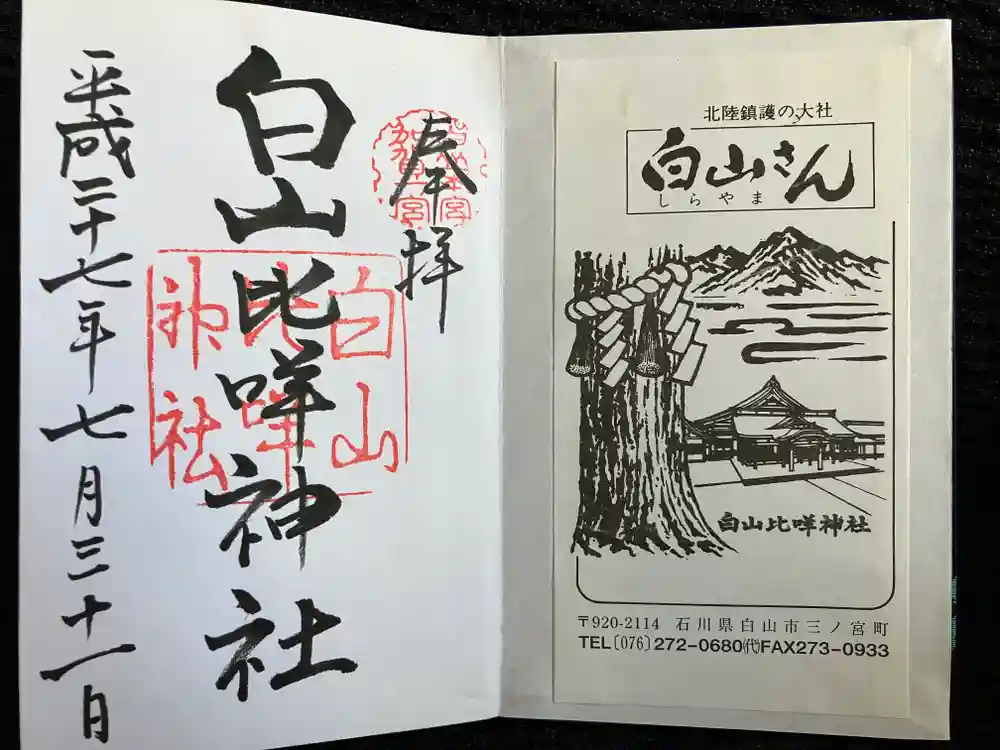 奉拝
白山比咩神社
平成二十七年七月三十一日
白山比咩神社
北陸鎮護の大社
白山さん
しらやま
白山比咩神社
〒920-2114 石川県白山市三ノ宮町
TEL〔076〕272-0680㈹FAX273-0933